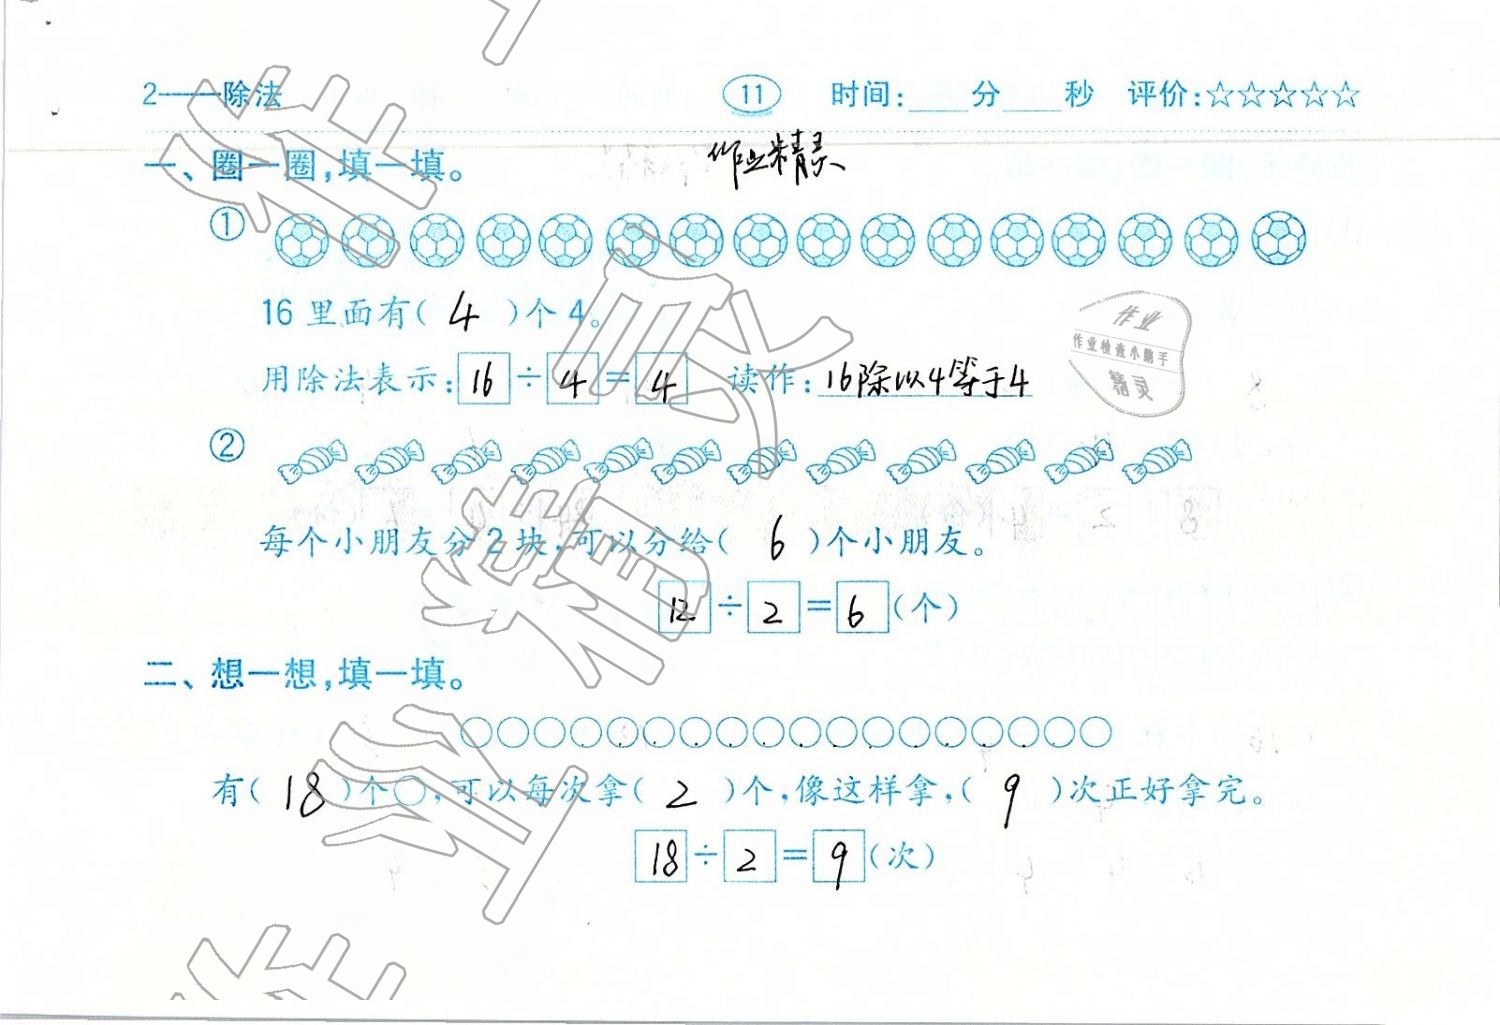 2——除法 11 时间:____分____秒 评价:☆☆☆☆☆
作业精灵
一、圈一圈,填一填。
①
16里面有( 4 )个4。
用除法表示: 16 ÷ 4 = 4 读作: 16除以4等于4
作业
作业检查小助手
精灵
②
每个小朋友分2块,可以分给( 6 )个小朋友。
12 ÷ 2 = 6 (个)
二、想一想,填一填。
○○○○○○○○○○○○○○○○○○
有( 18 )个○,可以每次拿( 2 )个,像这样拿,( 9 )次正好拿完。
18 ÷ 2 = 9 (次)